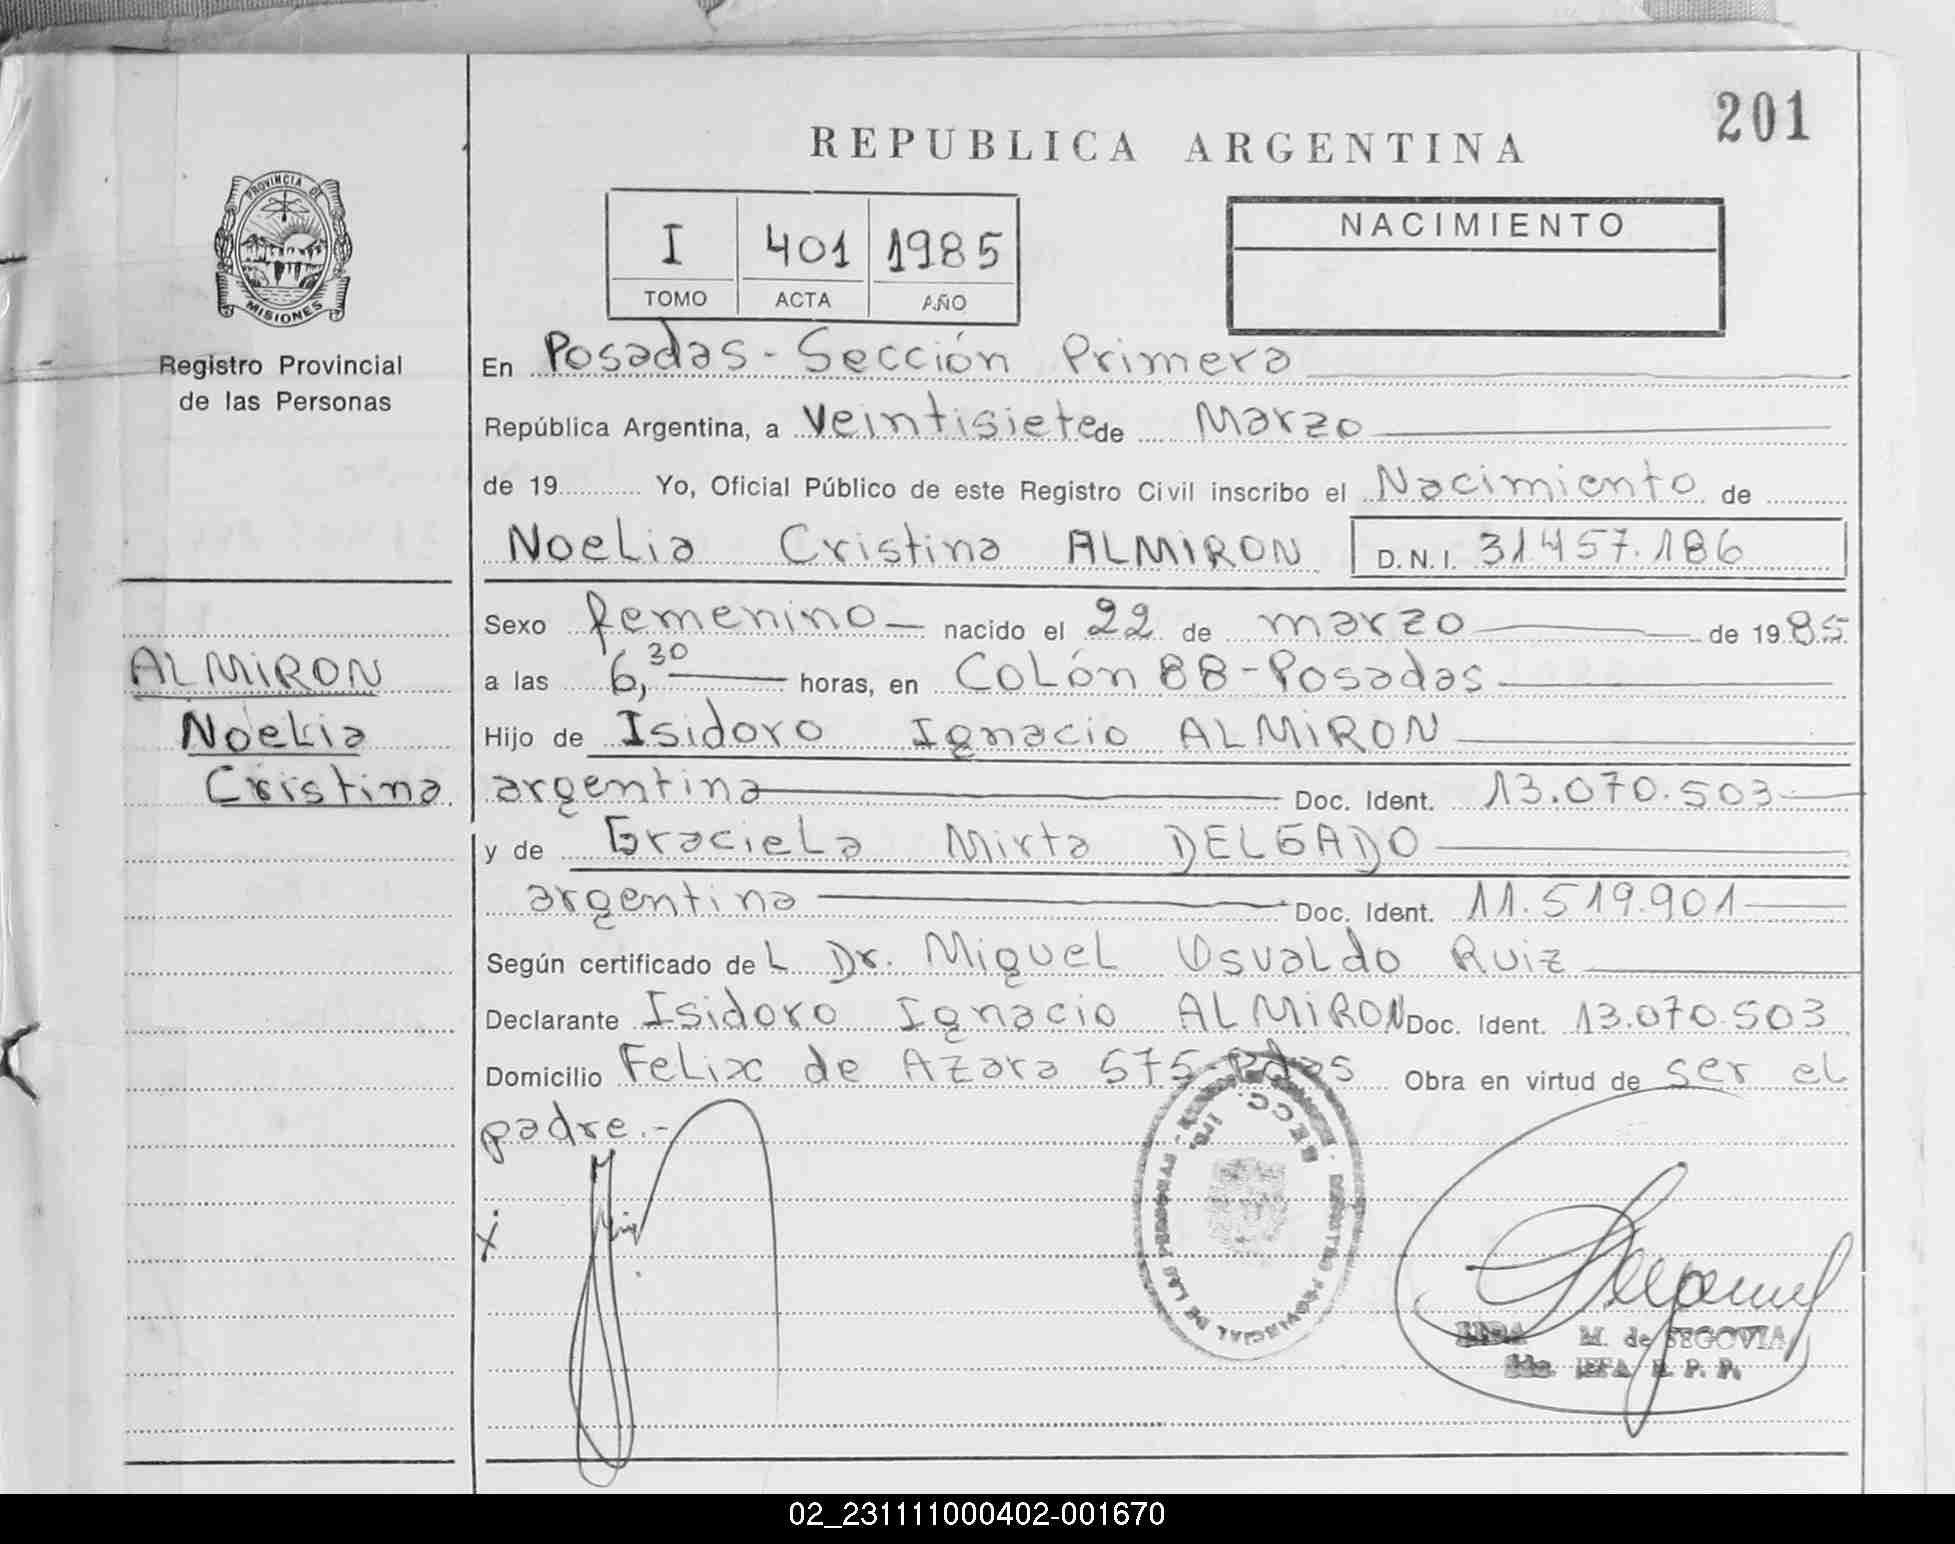 201
REPUBLICA ARGENTINA
PROVINCIA DE
MISIONES
Registro Provincial
de las Personas
I 401 1985
TOMO ACTA AÑO
NACIMIENTO
En Posadas - Sección Primera
República Argentina, a Veintisiete de Marzo
de 19 Yo, Oficial Público de este Registro Civil inscribo el Nacimiento de
Noelia Cristina ALMIRON D.N.I. 31.457.186
Sexo femenino nacido el 22 de marzo de 1985
a las 6,30 horas, en Colón 88 - Posadas
Hijo de Isidoro Ignacio ALMIRON
argentina Doc. Ident. 13.070.503
y de Graciela Mirta DELGADO
argentina Doc. Ident. 11.519.901
Según certificado del Dr. Miguel Osvaldo Ruiz
Declarante Isidoro Ignacio ALMIRON Doc. Ident. 13.070.503
Domicilio Felix de Azara 575 - Pdas Obra en virtud de ser el
padre.-
ALMIRON
Noelia
Cristina
x
SECC. 1ra.
REGISTRO PROVINCIAL DE LAS PERSONAS
M. de SEGOVIA
JEFA R. P. P.
02_231111000402-001670